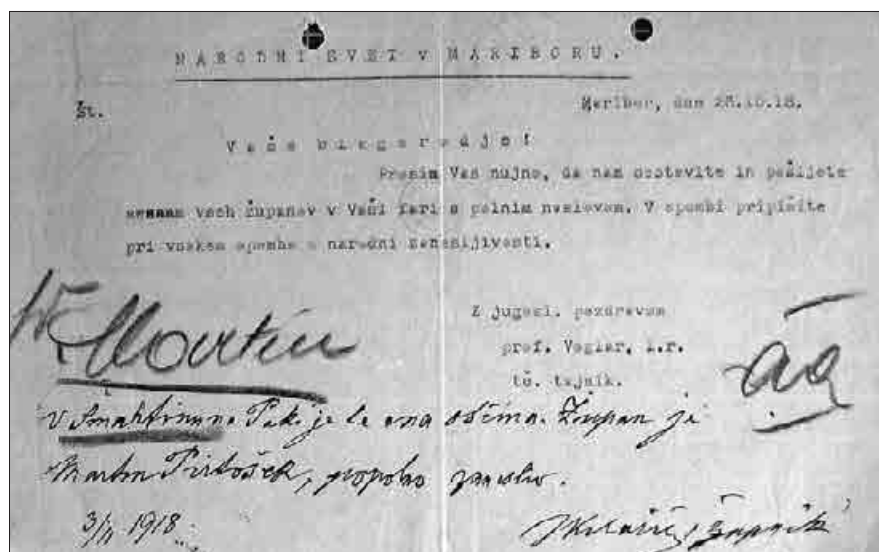 NARODNI SVET V MARIBORU.
Št. Maribor, dne 28.10.18.
Vaše blagorodje!
Prosim Vas nujno, da nam sestavite in pošljete
seznam vseh županov v Vaši fari s polnim naslovom. V opombi pripišite
pri vsakem opombo o narodni zanesljivosti.
Z jugosl. pozdravom
prof. Voglar, l.r.
tč. tajnik.
St. Martin
aa
V Šmartinu na Paki je le ena občina. Župan je
Martin Pirtošek, popolno zanesljiv.
3/11 1918
župnik